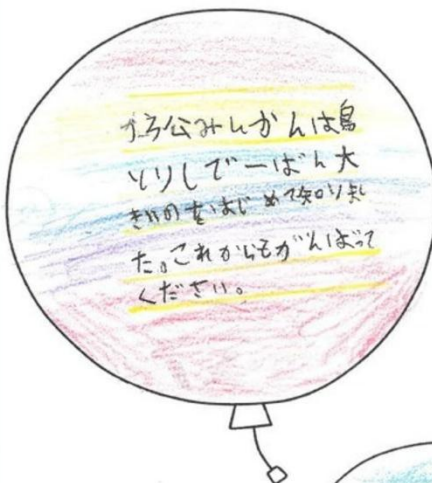 公みんかんは鳥
とりしで一ばん大
きいのをはじめて知りまし
た。これからもがんばって
ください。